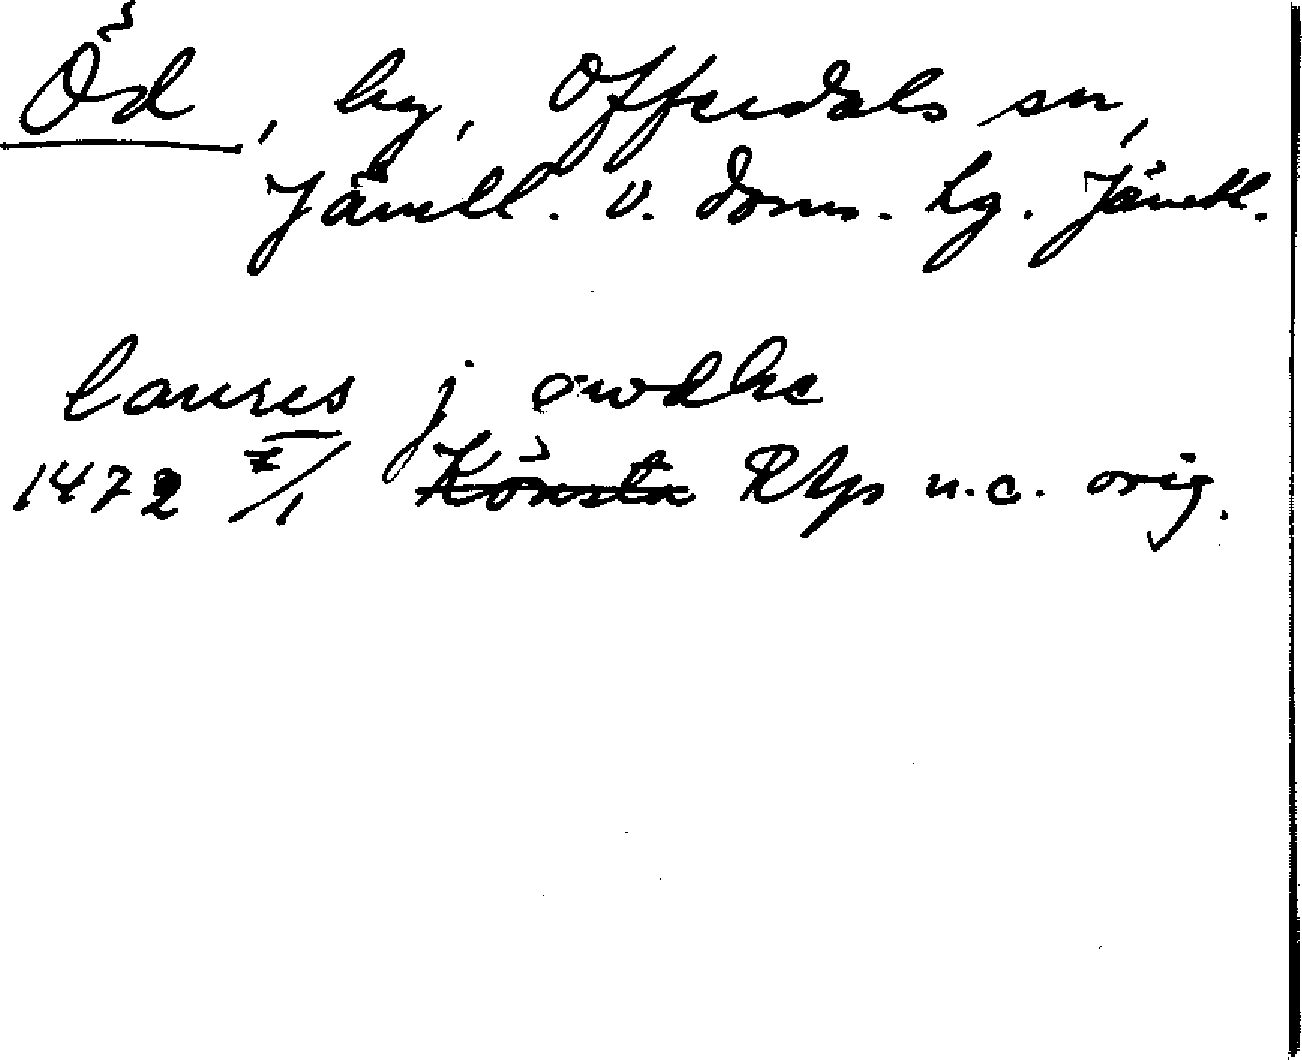 Öd, by, Offerdals sn,
Jämtl. v. doms. hg. Jämtl.
laures j owdhe
1472 7/1 Könsta RAp u.c. orig.